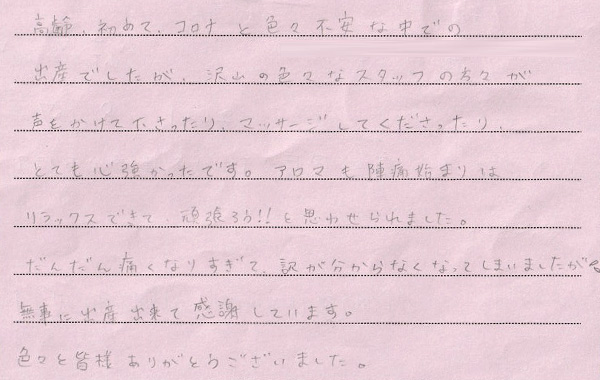 高齢、初めて、コロナと色々不安な中での
出産でしたが、沢山の色々なスタッフの方々が
声をかけて下さったり、マッサージしてくださったり、
とても心強かったです。アロマも陣痛始まりは
リラックスできて、頑張ろう!!と思わせられました。
だんだん痛くなりすぎて、訳が分からなくなってしまいましたが、
無事に出産出来て感謝しています。
色々と皆様ありがとうございました。